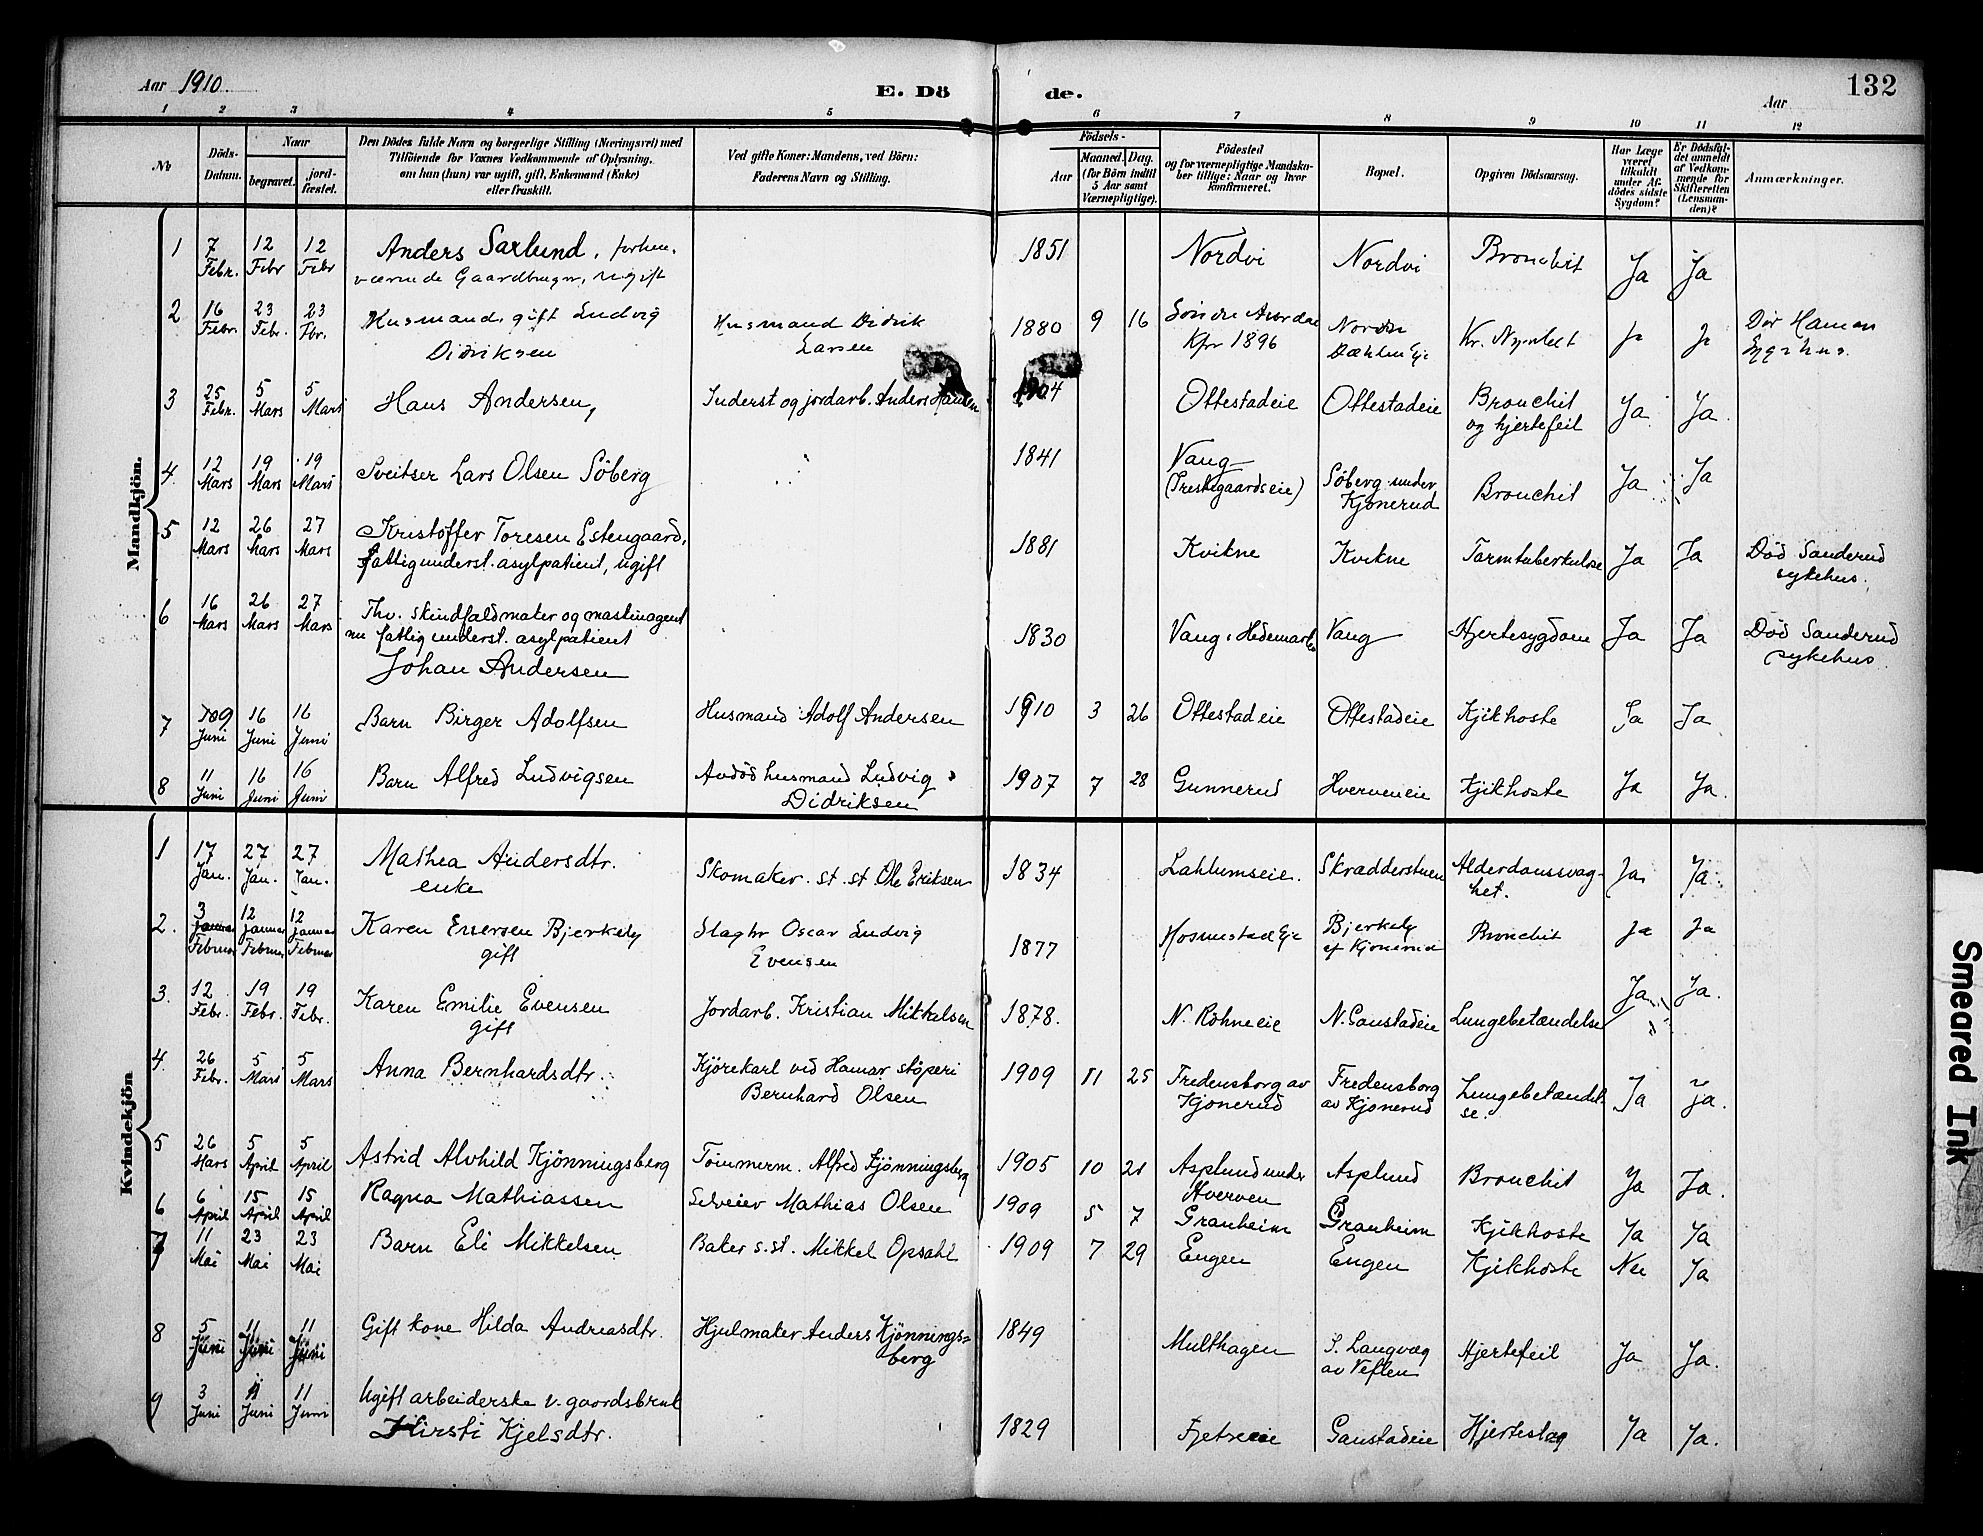 Aar 1910
E. Dö de.
Aar
132
1 2 3 4 5 6 7 8 9 10 11 12
No
Döds-Datum.
Naar
begravet.
jordfæstet.
Den Dödes fulde Navn og borgerlige Stilling (Næringsvei) med
Tilföiende for Voxnes Vedkommende af Oplysning,
om han (hun) var ugift, gift, Enkemand (Enke)
eller fraskilt.
Ved gifte Koner: Mandens, ved Börn:
Faderens Navn og Stilling.
Födsels-
Aar
Maaned. Dag.
(for Börn indtil
5 Aar samt
Værnepligtige).
Födested
og for værnepligtige Mandskaber tillige: Naar og hvor
konfirmeret.
Bopæl.
Opgiven Dödsaarsag.
Har Læge
været
tilkaldt
under Afdödes sidste
Sygdom?
Er Dödsfaldet anmeldt
af Vedkommende for
Skifteretten
(Lensmanden)?
Anmærkninger.
Mandkjön.
1 7 Febr. 12 Febr 12 Febr Anders Sarlund, forhenværende Gaardbruger, ugift 1851 Nordvi Nordvi Bronchit Ja Ja
2 16 Febr. 23 Febr. 23 Fbr. Husmand, gift Ludvig Didriksen Husmand Didrik Larsen 1880 9 16 Søndre Kfr 1896 Nordre Kr. Ja Ja Død Hamar Sygehus.
3 25 Febr. 5 Mars 5 Mars Hans Andersen, Inderst og jordarb. Anders Hansen 1904 Ottestadeie Ottestadeie Bronchit og hjertefeil Ja Ja.
4 12 Mars 19 Mars 19 Mars Sveitser Lars Olsen Söberg 1841 Vang (Prestegaardseie) Söberg under Kjonerud Bronchit Ja Ja
5 12 Mars 26 Mars 27 Mars Kristoffer Toresen Estengaard, fattigunderst. asylpatient, ugift 1881 Kvikne Kvikne Tarmtuberkulose Ja Ja Död Sanderud sykehus.
6 16 Mars 26 Mars 27 Mars Fhv. skindfældmaker og maskinagent nu fattigunderst. asylpatient Johan Andersen 1830 Vang, Hedemark Vang Hjertesygdom Ja Ja Död Sanderud sykehus.
7 9 Juni 16 Juni 16 Juni Barn Birger Adolfsen Husmand Adolf Andersen 1910 3 26 Ottestadeie Ottestadeie Kjikhoste Ja Ja
8 11 Juni 16 Juni 16 Juni Barn Alfred Ludvigsen Avdöd husmand Ludvig Didriksen 1907 7 28 Gunnerud Hverveneie Kjikhoste Ja Ja.
Kvindekjön
1 17 Jan. 27 Jan. 27 Jan. Mathea Andersdtr. enke Skomaker. st. st Ole Eriksen 1834 Lahlumseie. Skrædderstuen Alderdomssvaghet. Ja Ja.
2. 3 Januar Februar 12 Januar Februar 12 Januar Februar Karen Evensen Bjerkely gift Slagtr Oscar Ludvig Evensen 1877 Bjerkely af Kjonerud Bronchit Ja Ja
3. 12 Febr. 19 Febr. 19 Febr. Karen Emilie Evensen gift Jordarb. Kristian Mikkelsen 1878. N. Röhneeie N. Gaustadeie Lungebetændelse Ja Ja.
4. 26 Febr. 5 Mars 5 Mars Anna Bernhardsdtr. Kjörekarl ved Hamar stöperi Bernhard Olsen 1909 11 25 Fredensborg av Kjonerud Fredensborg av Kjonerud Lungebetændelse. Ja Ja.
5 26 Mars 5 April 5 April Astrid Alvhild Kjönningsberg Tömmerm. Alfred Kjönningsberg 1905 10 21 Asplund under Hverven Asplund Bronchit Ja Ja.
6 6 April 15 April 15 April Ragna Mathiassen Selveier Mathias Olsen 1909 5 7 Granheim Granheim Kjikhoste Ja Ja
7 11 Mai 23 Mai 23 Mai Barn Eli Mikkelsen Baker s.st. Mikkel Opsahl 1909 7 29 Engen Engen Kjikhoste Nei Ja
8 5 Juni 11 Juni 11 Juni Gift kone Hilda Andreasdtr. Hjulmaker Anders Kjönningsberg 1849 Multhagen S. Langvæg av Veflen Hjertefeil Ja Ja.
9 3 Juni 11 Juni 11 Juni Ugift arbeiderske v. gaardsbruk Kirsti Kjelsdtr. 1829 Fjetreeie Gaustadeie Hjerteslag Ja Ja.
Smeared Ink